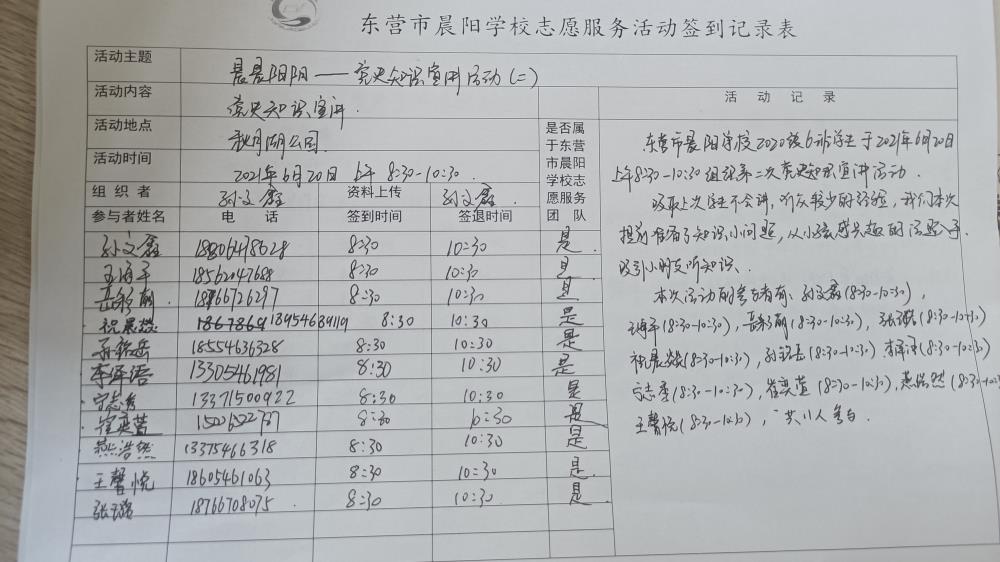 东营市晨阳学校志愿服务活动签到记录表
活动主题 晨晨阳阳——党史知识宣讲活动(二)
活动内容 党史知识宣讲.
活动地点 秋月湖公园.
活动时间 2021年6月20日 上午 8:30-10:30.
组织者 孙文鑫 资料上传 孙文鑫
是否属于东营市晨阳学校志愿服务团队
参与者姓名 电话 签到时间 签退时间
孙文鑫 18806478628 8:30 10:30 是.
18562047688 8:30 10:30 是
18766726297 8:30 10:30 是
祝晨燚 18954689119 8:30 10:30 是
18554636328 8:30 10:30 是
李泽语 13305461981 8:30 10:30 是
13371500922 8:30 10:30 是
崔奕萱 8:30 10:30 是
燕浩然 13375466318 8:30 10:30 是
王馨悦 18605461063 8:30 10:30 是.
张璐 18766708075. 8:30 10:30 是
活动记录
东营市晨阳学校2020级6班学生于2021年6月20日
上午8:30-10:30组织第二次党史知识宣讲活动.
吸取上次学生不会讲,听众较少的经验,我们本次
提前准备了知识小问题,从小孩感兴趣的话题入手.
吸引小朋友听知识.
本次活动的参与者有:孙文鑫(8:30-10:30),
(8:30-10:30), (8:30-10:30), 张璐(8:30-10:30)
祝晨燚(8:30-10:30), (8:30-10:30) 李泽语(8:30-10:30)
(8:30-10:30), 崔奕萱(8:30-10:30), 燕浩然(8:30-10:30)
王馨悦(8:30-10:30), 共11人参与.